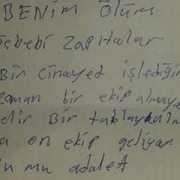 BENim Ölüm
sebebi Zabıtalar
Bir Cinayet işlediğin
zaman bir ekip almaya
Gelir Bir tablaya
on ekip geliyor
mu adalet